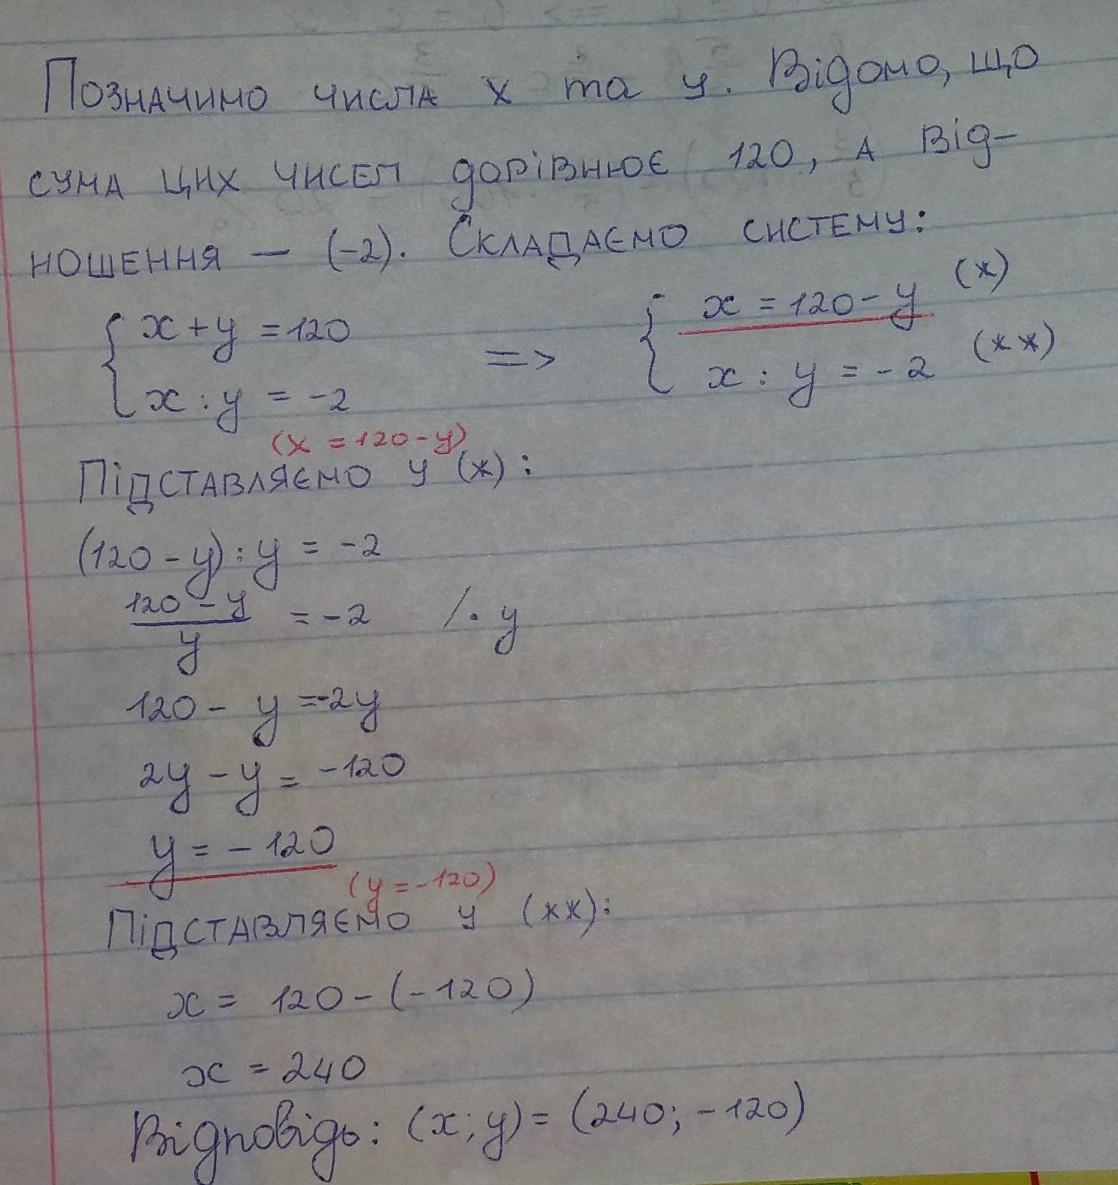 Позначимо числа x та y. Відомо, що
сума цих чисел дорівнює 120, а від-
ношення — (-2). Складаємо систему:
{ x + y = 120 => { x = 120 - y (x)
{ x : y = -2 { x : y = -2 (xx)
(x = 120 - y)
Підставляємо у (x):
(120 - y) : y = -2
120 - y / y = -2 /· y
120 - y = -2y
2y - y = -120
y = -120
(y = -120)
Підставляємо у (xx):
x = 120 - (-120)
x = 240
Відповідь: (x; y) = (240; -120)